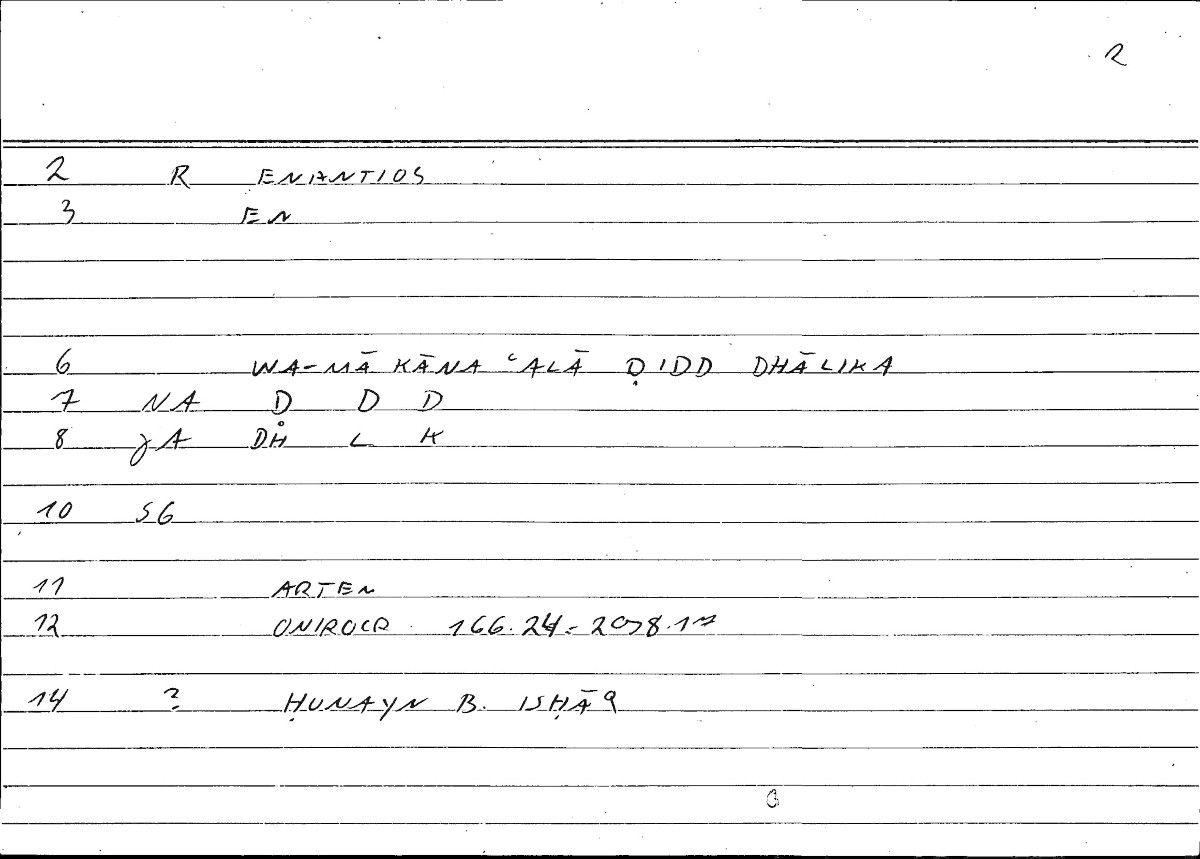 2
2 R ENANTIOS
3 EN
6 WA-MĀ KĀNA ʿALĀ ḌIDD DHĀLIKA
7 NA D D D
8 JA DH L K
10 SG
11 ARTEM
12 ONIROCR. 166.24 = 298.17
14 ? ḤUNAYN B. ISḤĀQ